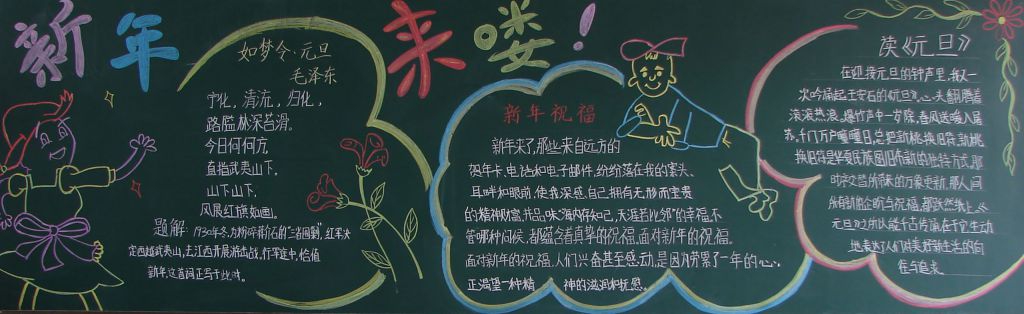 新年来喽!
如梦令·元旦
毛泽东
宁化,清流,归化,
路隘林深苔滑。
今日何何方,
直指武夷山下,
山下山下,
风展红旗如画。
题解:1930年冬,为粉碎蒋介石的"三省围剿",红军决
定西越武夷山,去江西开展游击战,行军途中,恰值
新年,这首词正写于此时。
新年祝福
新年来了,那些来自远方的
贺年卡、电话和电子邮件,纷纷落在我的案头、
耳畔和眼前,使我深感自己拥有无形而宝贵
的精神财富,共品味"海内存知己,天涯若比邻"的幸福,不
管哪种问候,都蕴含着真挚的祝福,面对新年的祝福。
面对新年的祝福,人们兴奋甚至感动,是因为劳累了一年的心,
正渴望一种精 神的滋润和抚慰。
读《元旦》
在迎接元旦的钟声里,我又一
次吟诵起王安石的《元旦》。心头翻腾着
滚滚热浪。爆竹声中一岁除,春风送暖入屠
苏。千门万户曈曈日,总把新桃换旧符。新桃
换旧符是华夏民族
时空交替所带来的万象更新,那人间
元旦》之所以能千古传诵在于它生动
地表达了人们对美好新生活的向
往与追求。